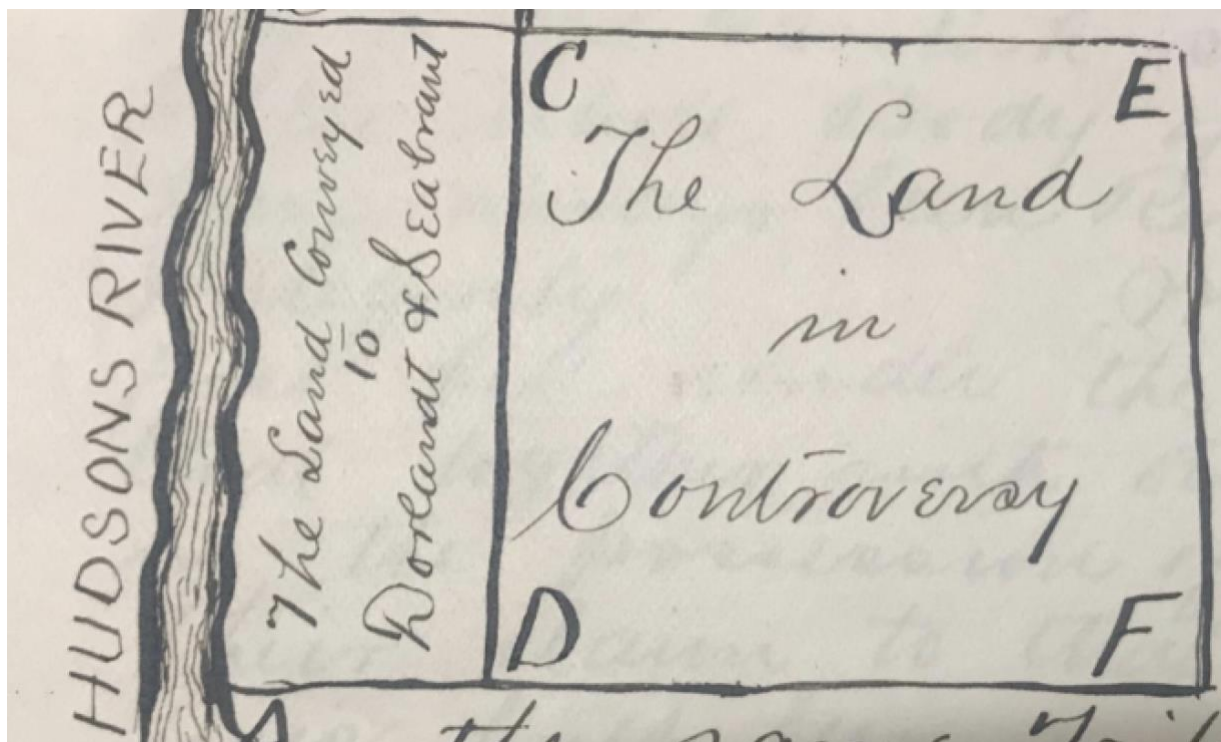 HUDSONS RIVER
The Land Conveyed
to
Dorlandt & Seabrant
C
E
The Land
in
Controversy
D
F